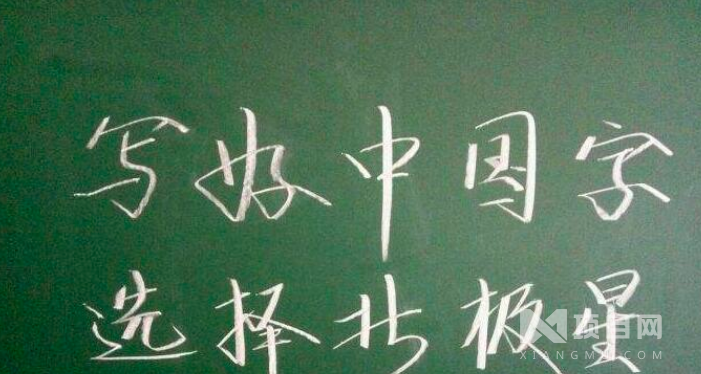 写好中国字
选择北极星
项目网